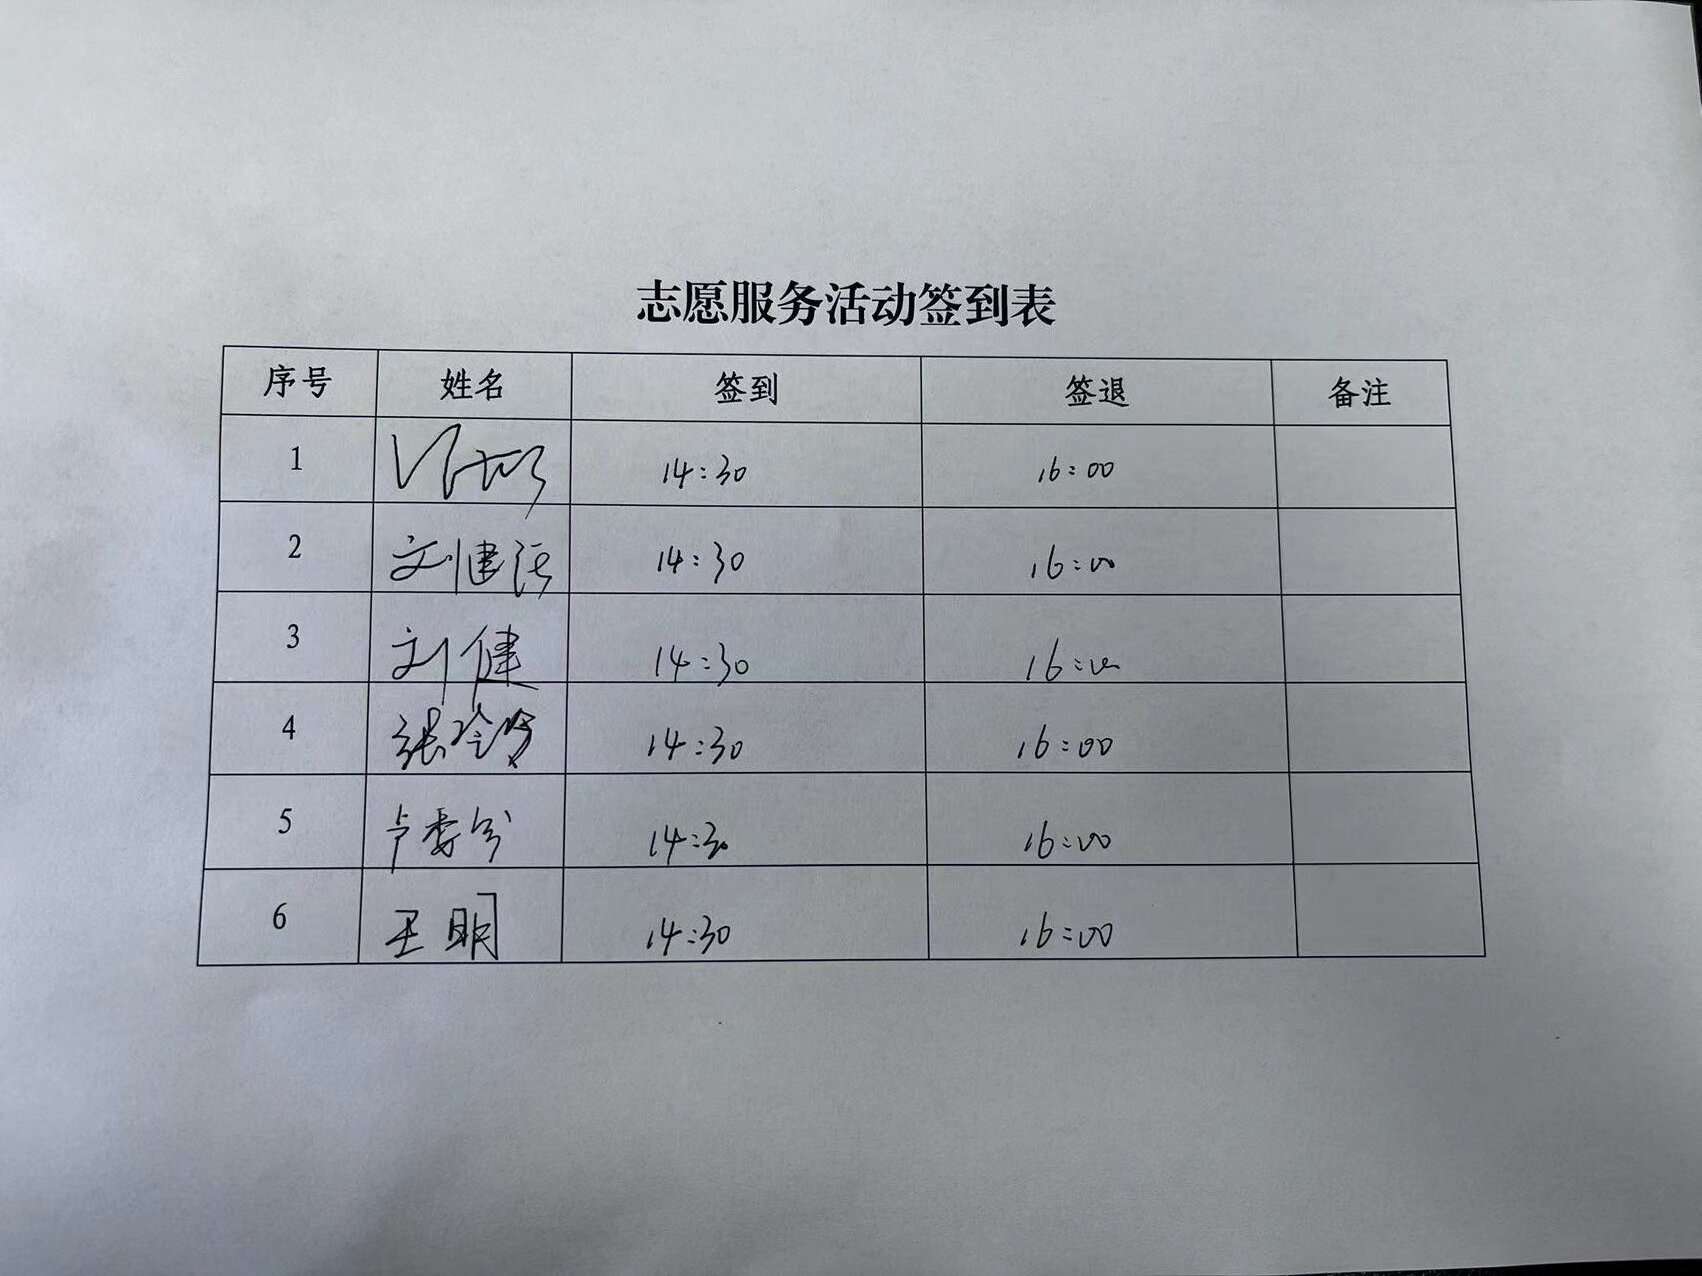 志愿服务活动签到表
序号 姓名 签到 签退 备注
1 14:30 16:00
2 刘健 14:30 16:00
3 刘健 14:30 16:00
4 张 14:30 16:00
5 卢 14:30 16:00
6 王明 14:30 16:00